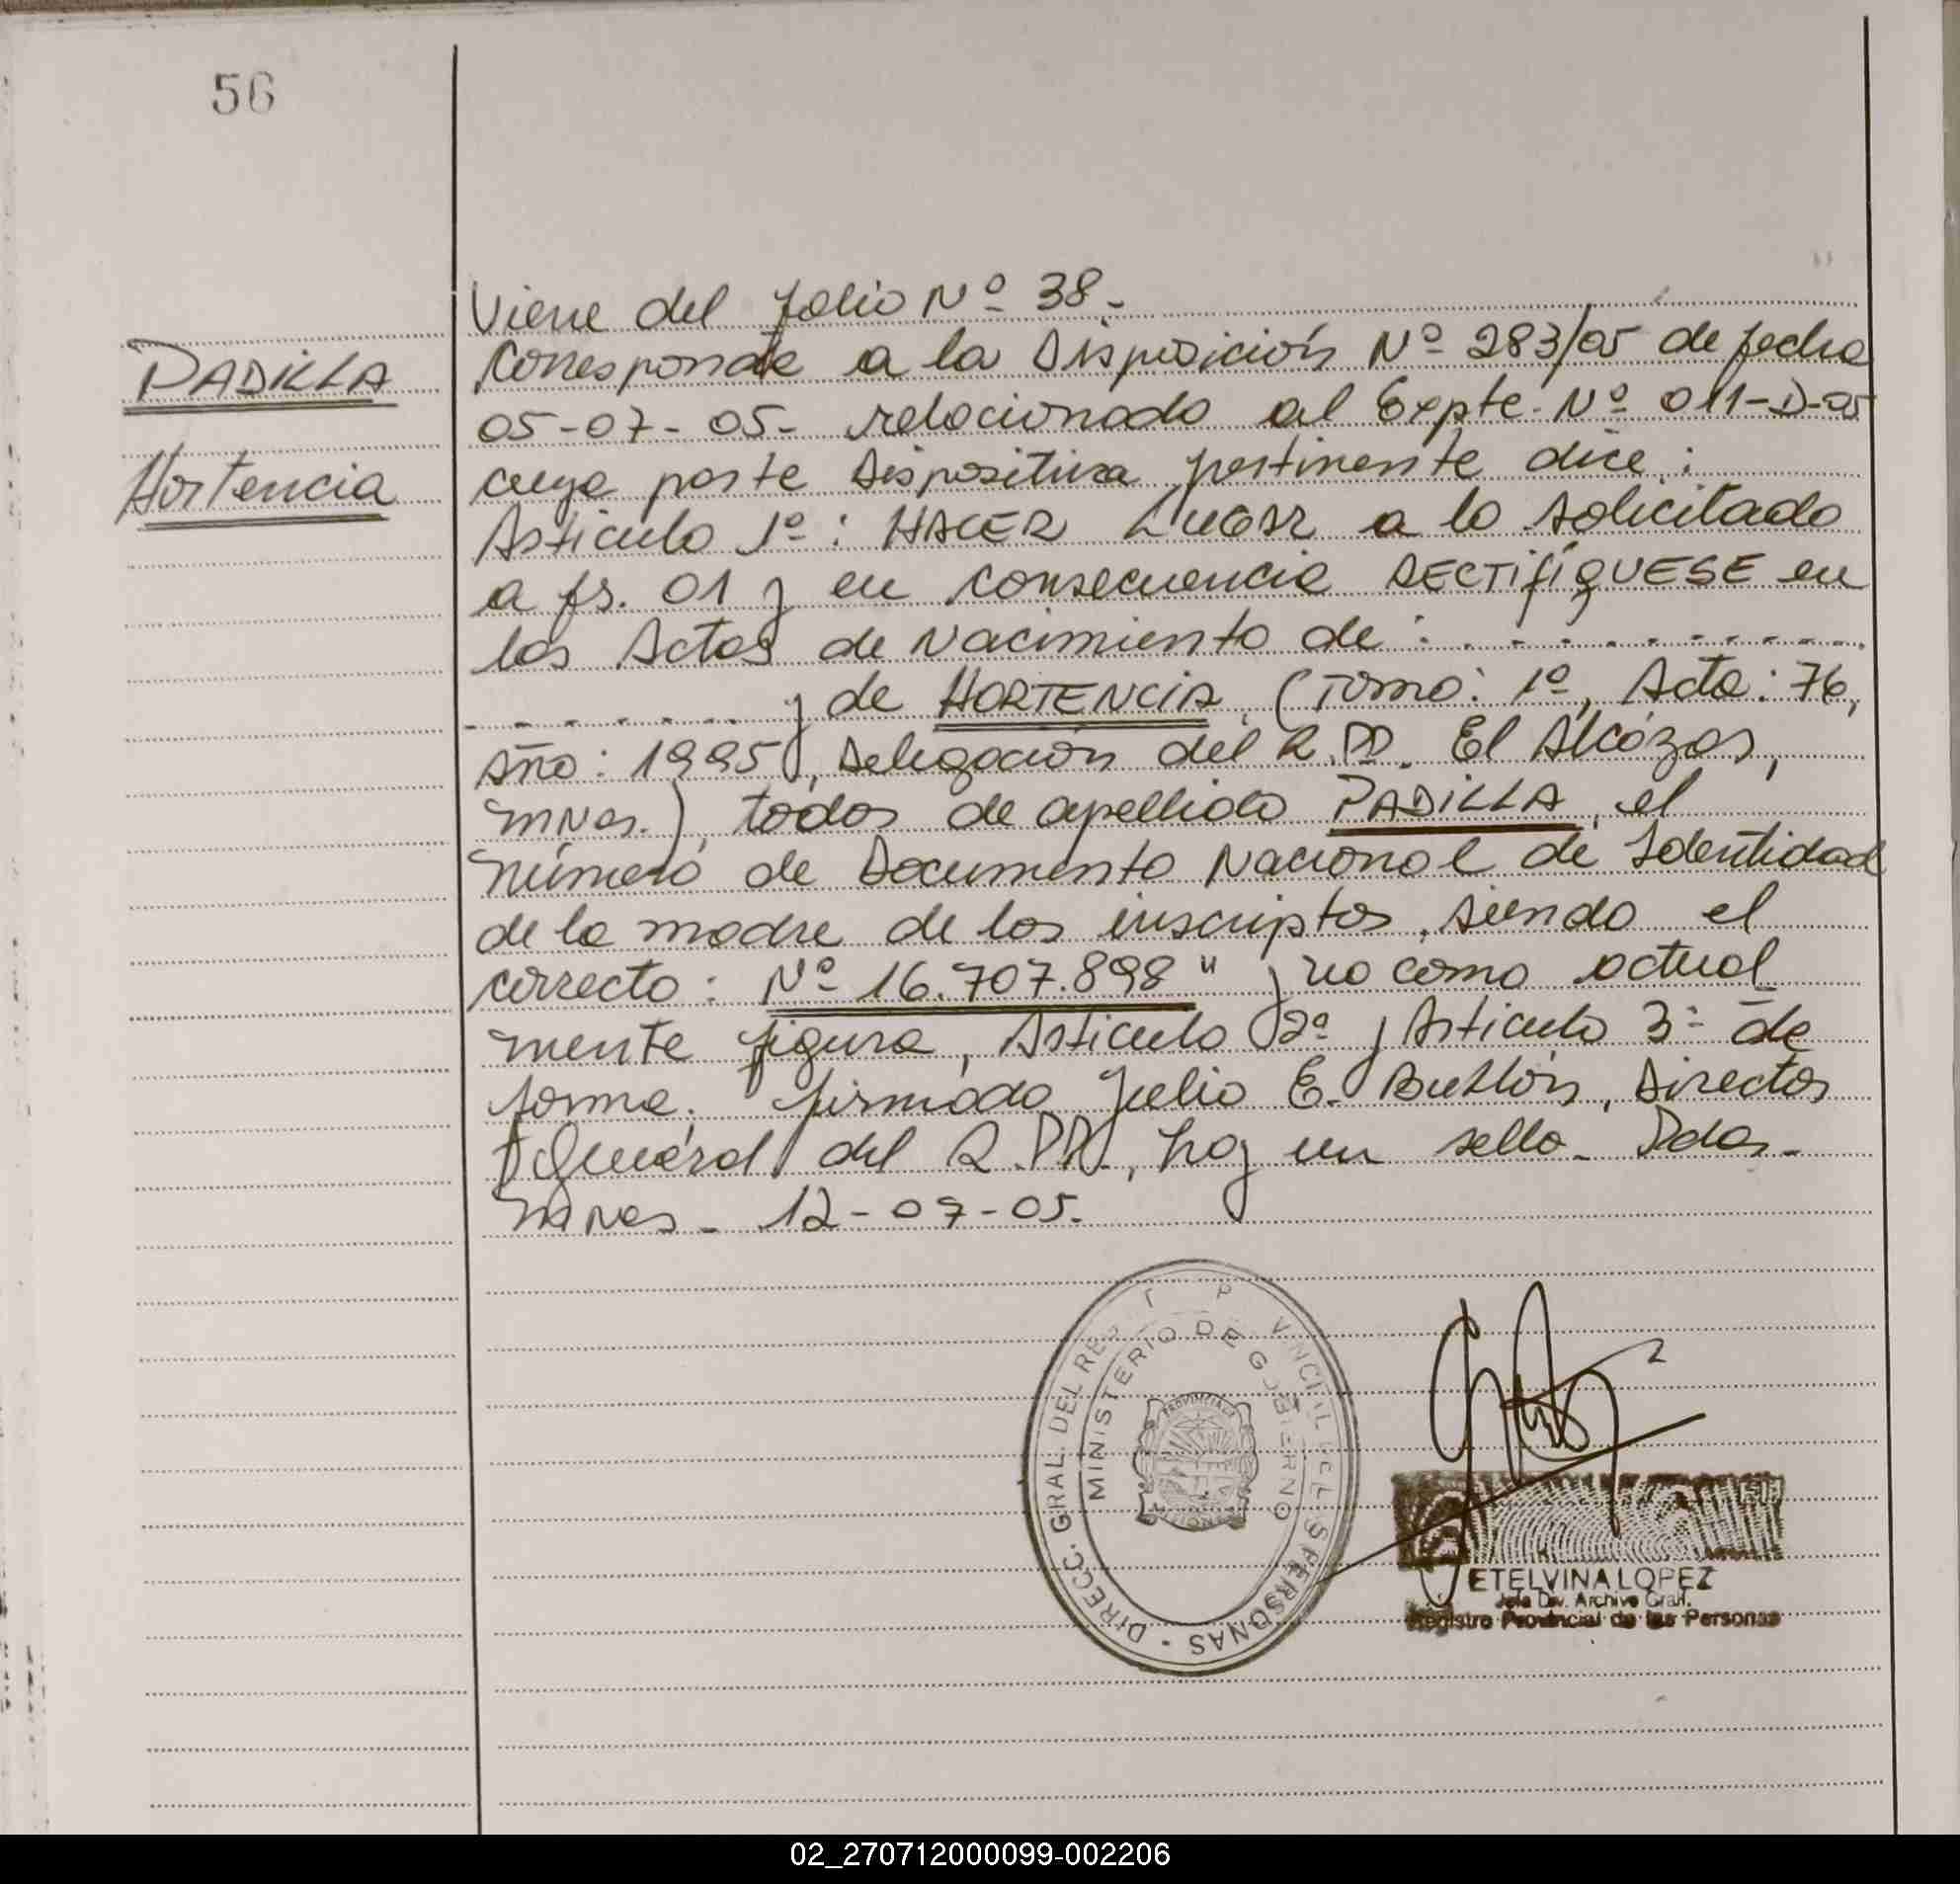 56
PADILLA
Hortencia
Viene del folio Nº 38.-
Corresponde a la Disposición Nº 283/05 de fecha
05-07-05- relacionado al Expte. Nº 011-D-05
cuya parte Dispositiva pertinente dice:
Artículo 1º: HACER LUGAR a lo solicitado
a fs. 01 y en consecuencia RECTIFÍQUESE en
las Actas de Nacimiento de: . - . - . - . - . - .
- . - . - . - . y de HORTENCIA, (Tomo: 1º, Acta: 76,
Año: 1995, Delegación del R.PP. El Alcózar,
mnes.), todos de apellido PADILLA, el
número de Documento Nacional de Identidad
de la madre de los inscriptos, siendo el
correcto: Nº 16.707.898" y no como actual
mente figura, Artículo 2º y Artículo 3º de
forma. firmado Julio E. Director
General del R.PP., hay un sello. Pdas.
mnes. 12-07-05.
DIRECC. GRAL. DEL REG PROVINCIAL DE LAS PERSONAS
MINISTERIO DE GOBIERNO
ETELVINA LOPEZ
Jefa Div. Archivo Gral.
Registro Provincial de las Personas
02_270712000099-002206